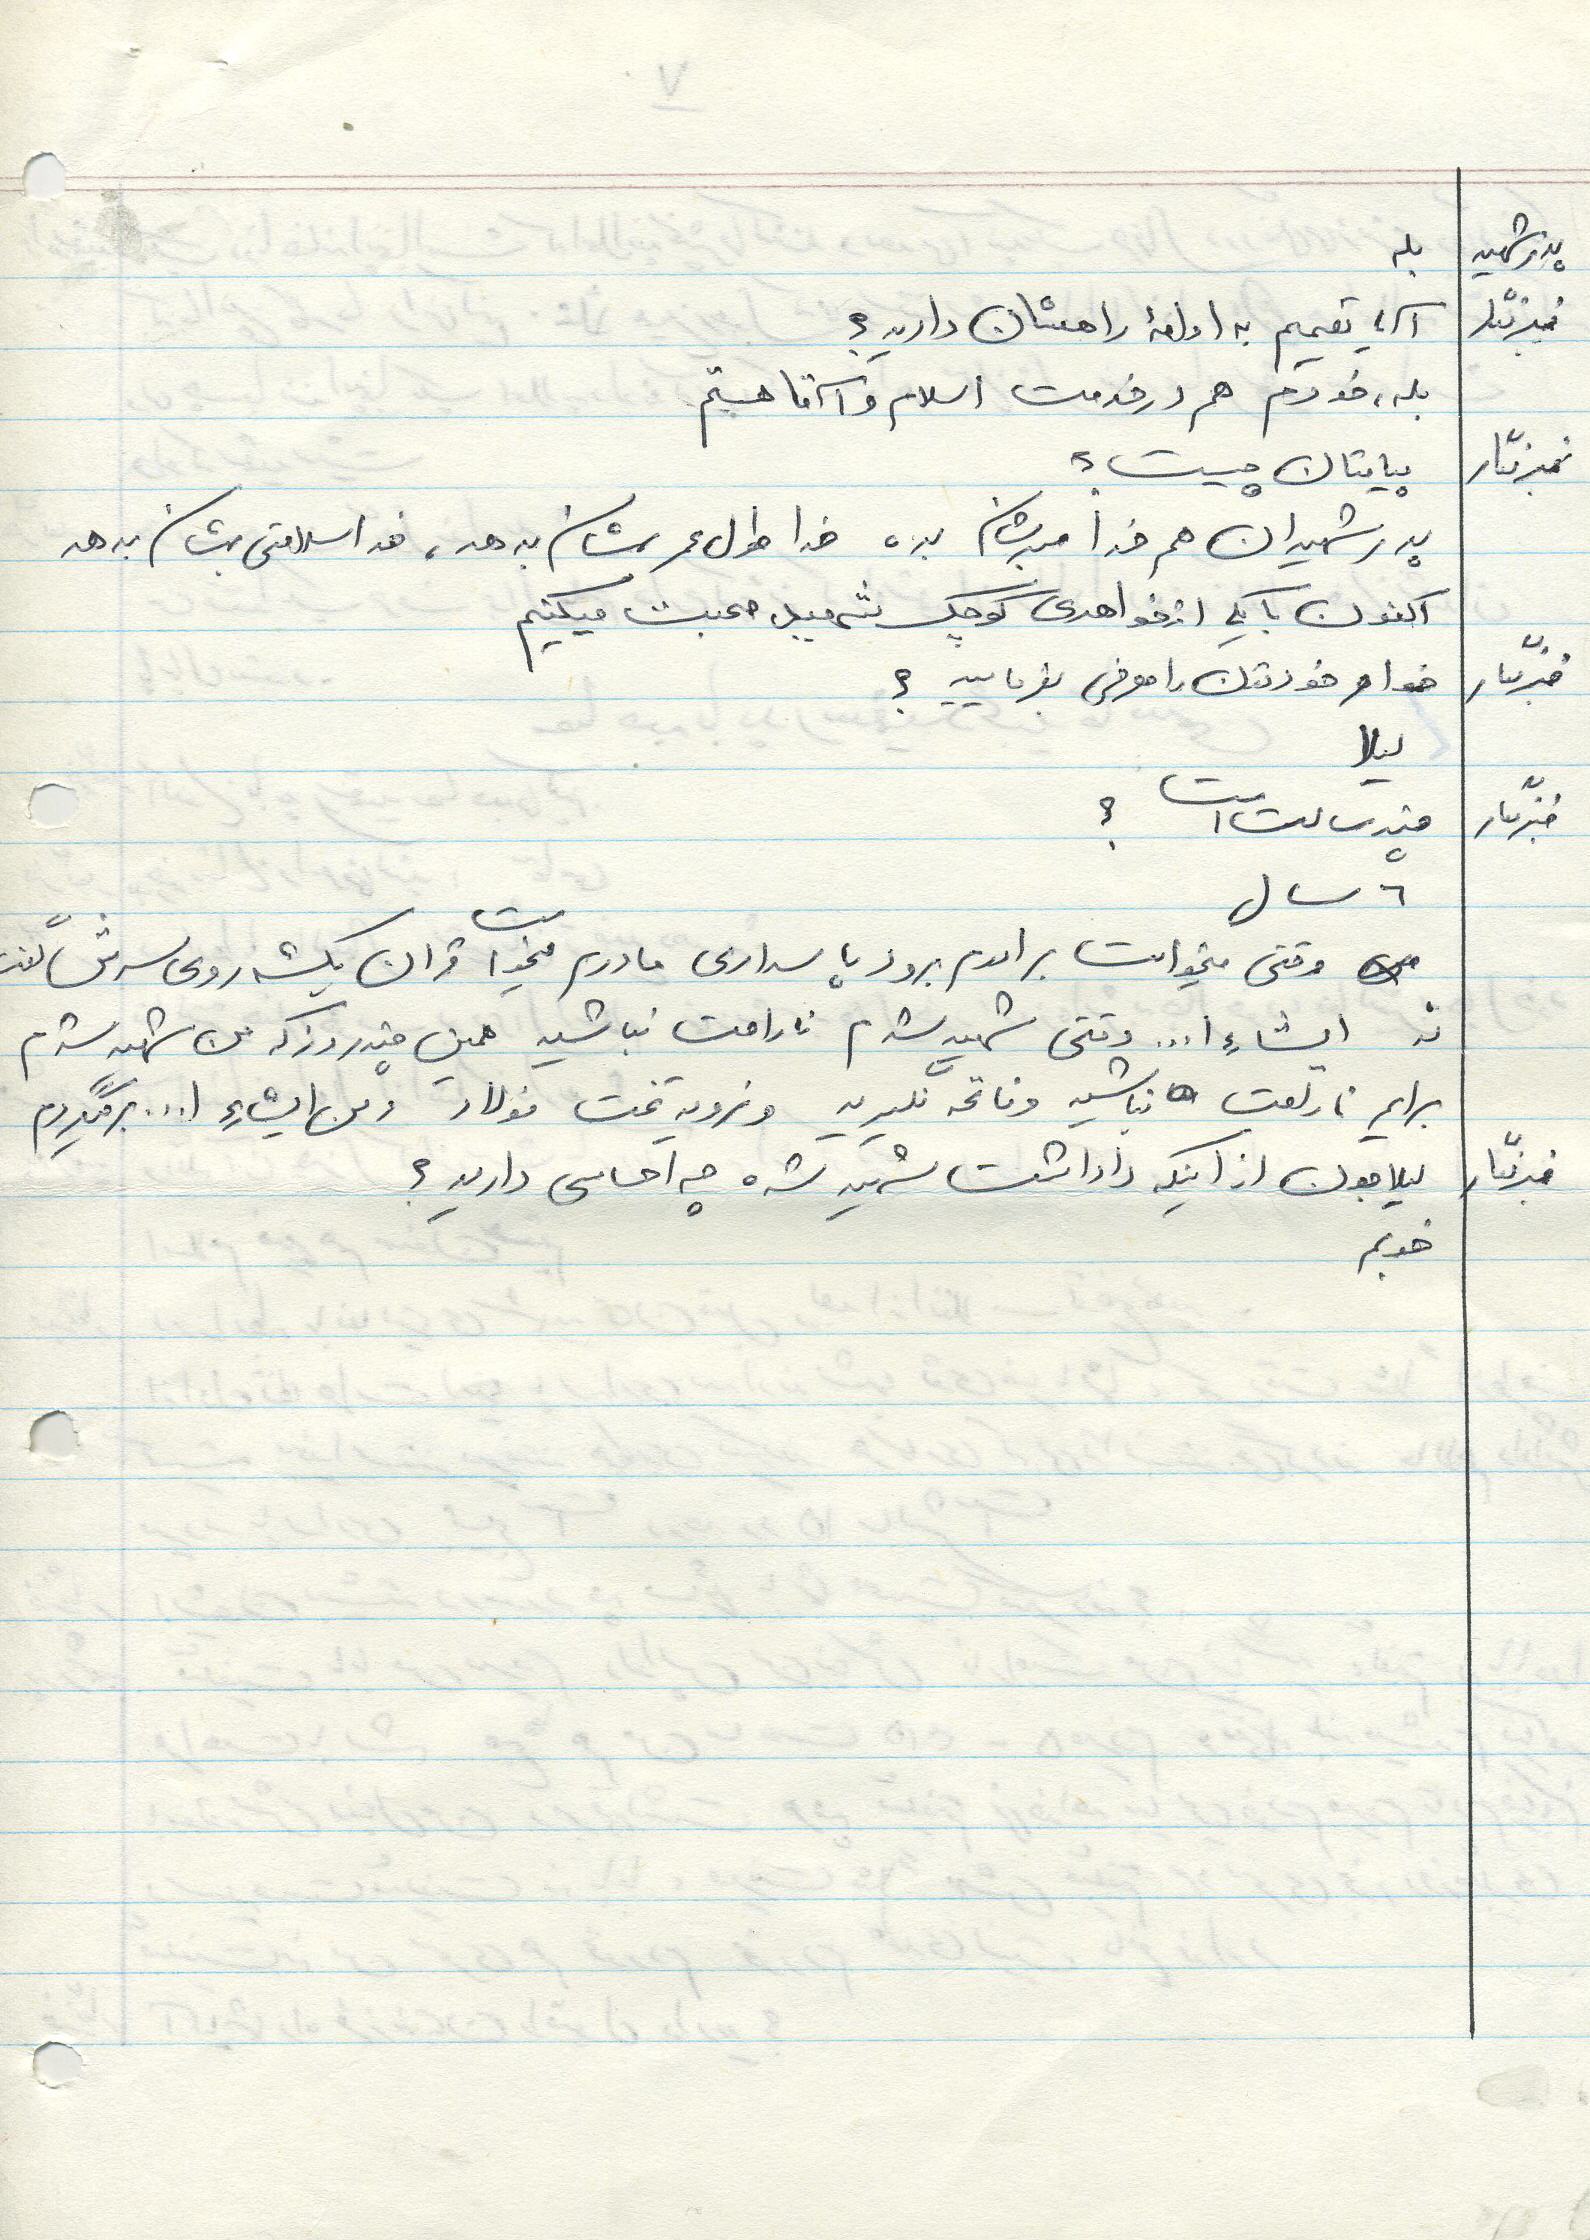 ۷
پدر شهید بله
خبرنگار آیا تصمیم به ادامۀ راهشان دارید؟
بله، خودم هم در خدمت اسلام و آقا هستم
خبرنگار پیامتان چیست؟
پدر شهیدان هم خدا صبرشان بده خدا طول عمر بهشان بدهد، خدا سلامتی بهشان بدهد
اکنون با یکی از خواهری کوچک شهید صحبت میکنیم
خبرنگار خواهر خودتون را معرفی بفرمایید؟
لیلا
خبرنگار چند سالت است؟
۶ سال
وقتی میخواست برادرم برود پاسداری مادرم میخواست قران بکشه روی سرش گفت
نه ایشاءا... وقتی شهید شدم ناراحت نباشید همین چند روز که من شهید شدم
برایم ناراحت نباشید و فاتحه نگیرید و نروید تخت فولاد و من ایشاءا... برمیگردم
خبرنگار لیلا جون از اینکه داداشت شهید شده چه احساسی دارید؟
خوبم